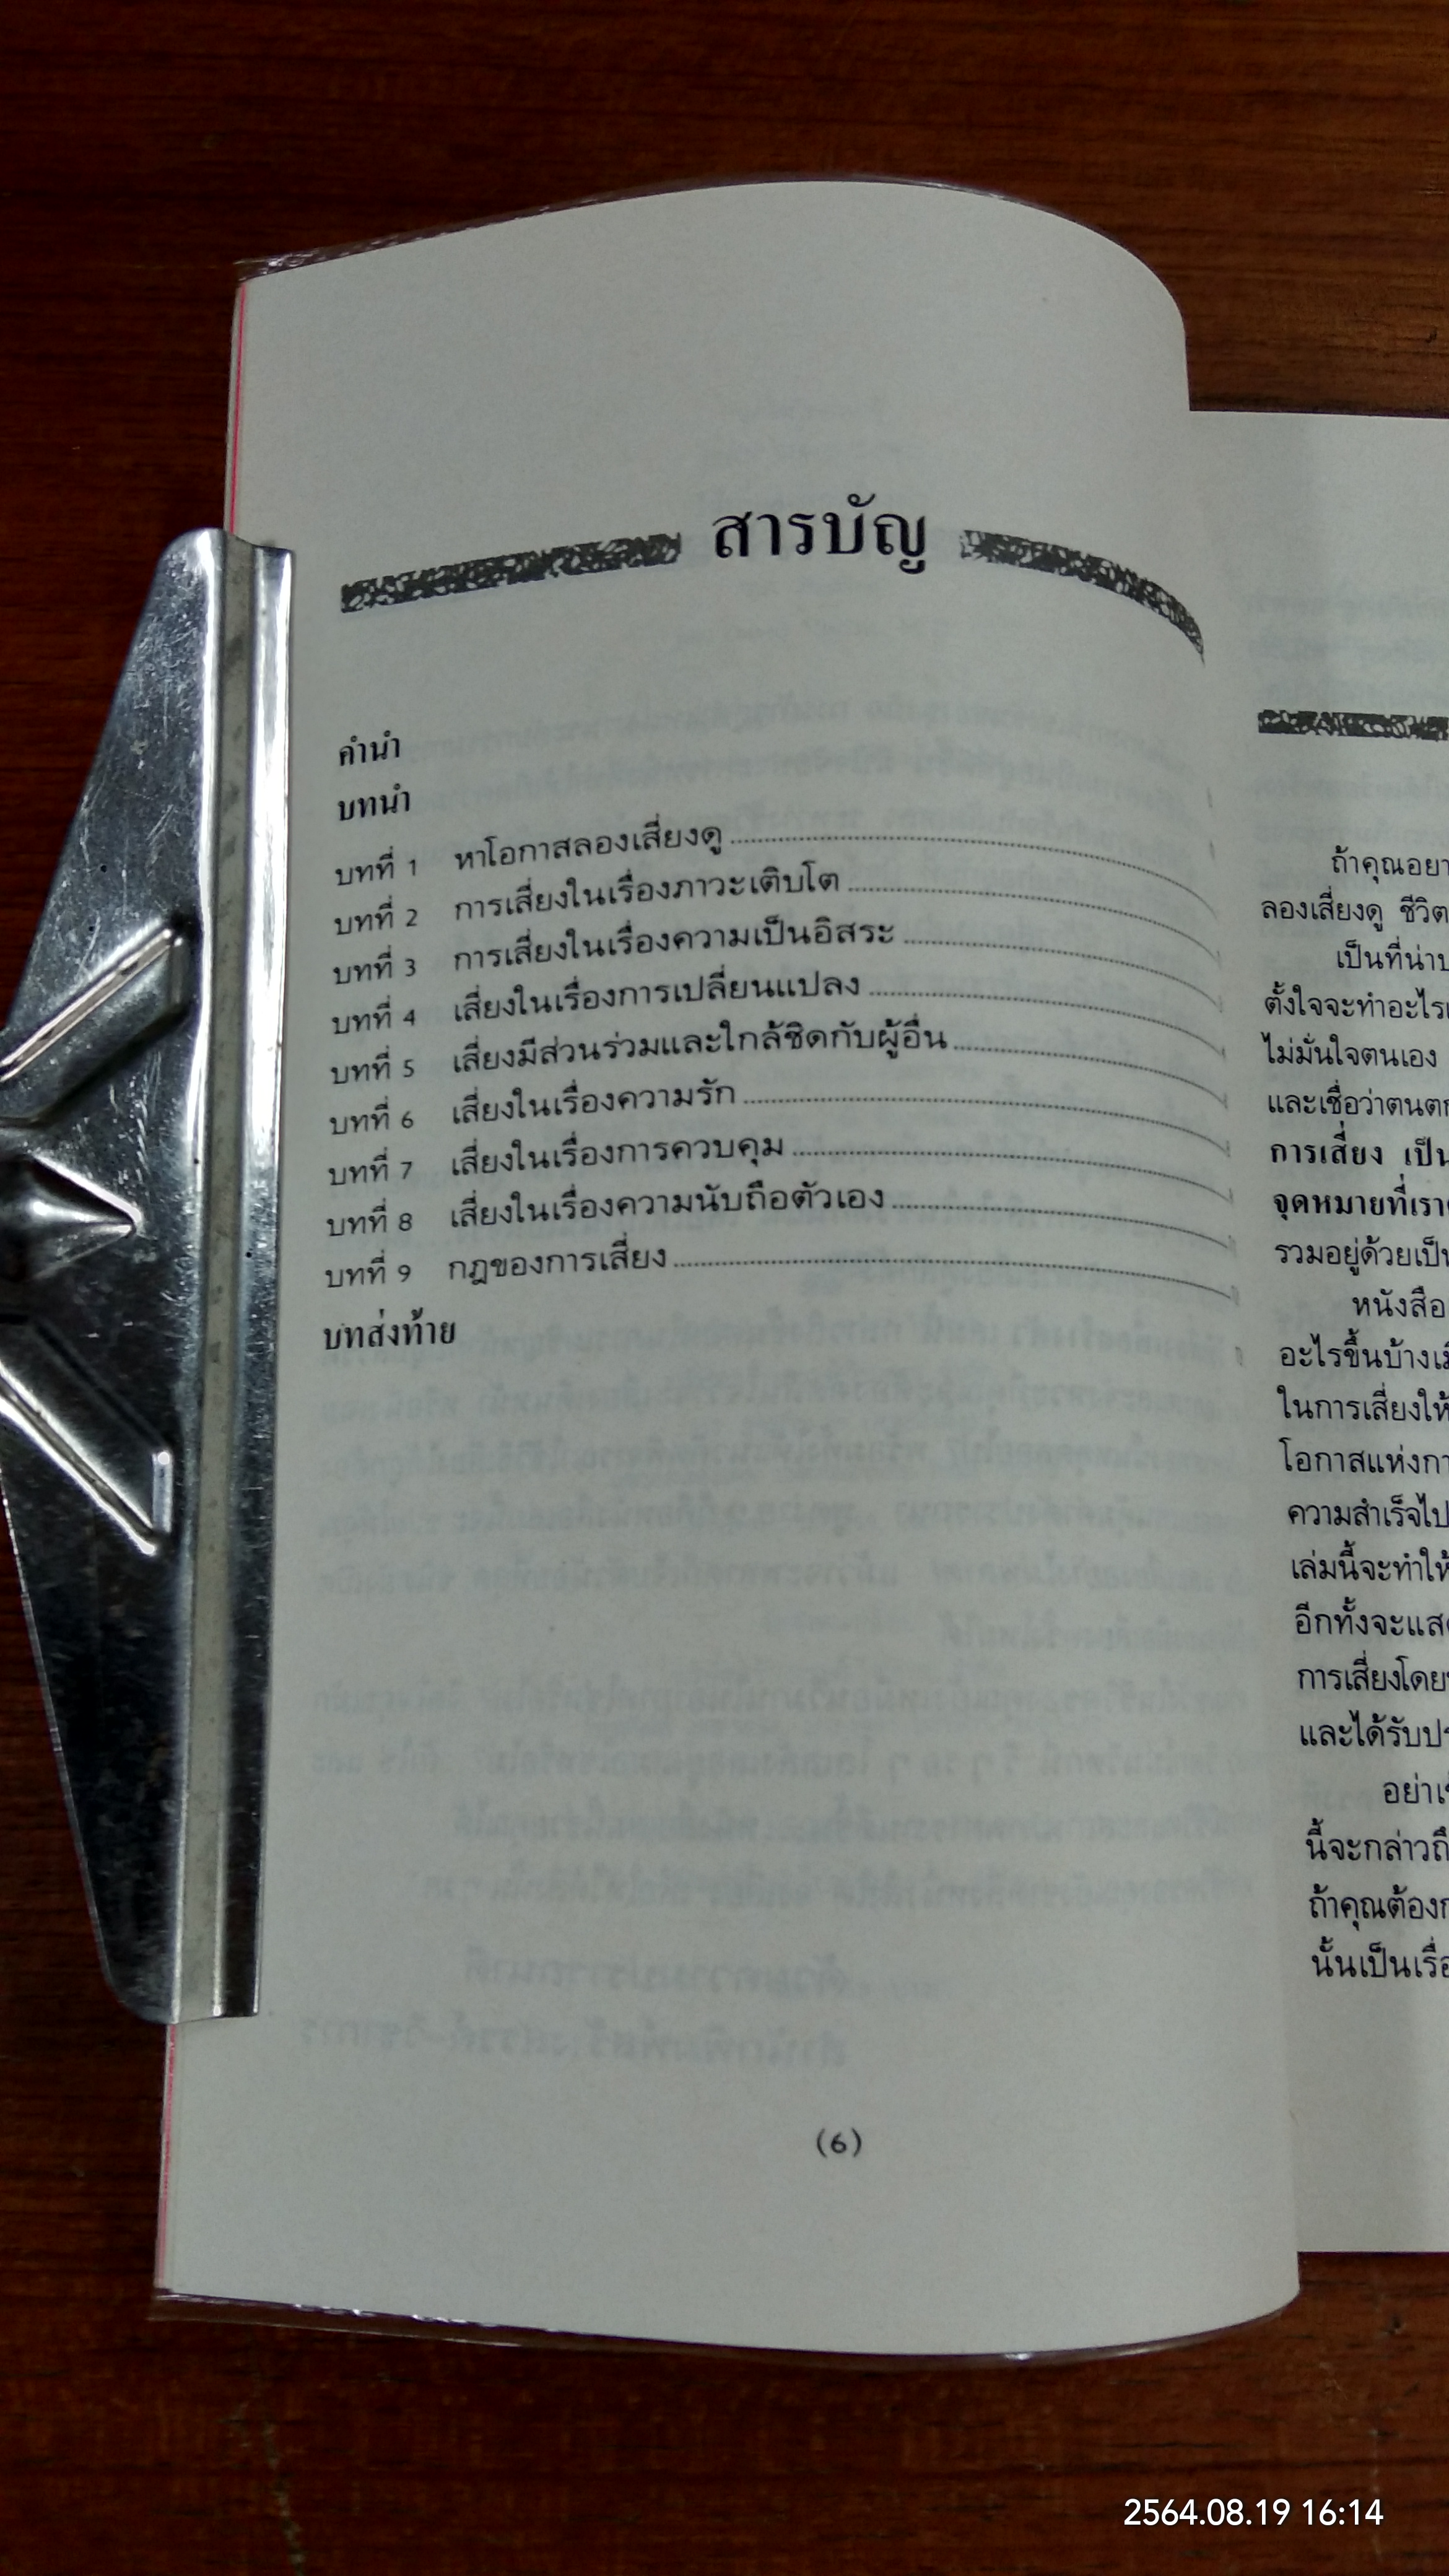 สารบัญ
คำนำ
บทนำ
บทที่ 1 หาโอกาสลองเสี่ยงดู
บทที่ 2 การเสี่ยงในเรื่องภาวะเติบโต
บทที่ 3 การเสี่ยงในเรื่องความเป็นอิสระ
บทที่ 4 เสี่ยงในเรื่องการเปลี่ยนแปลง
บทที่ 5 เสี่ยงมีส่วนร่วมและใกล้ชิดกับผู้อื่น
บทที่ 6 เสี่ยงในเรื่องความรัก
บทที่ 7 เสี่ยงในเรื่องการควบคุม
บทที่ 8 เสี่ยงในเรื่องความนับถือตัวเอง
บทที่ 9 กฎของการเสี่ยง
บทส่งท้าย
(6)
ถ้าคุณอยา
ลองเสี่ยงดู ชีวิต
เป็นที่น่า
ตั้งใจจะทำอะไร
ไม่มั่นใจตนเอง
และเชื่อว่าตนต
การเสี่ยง เป็น
จุดหมายที่เรา
รวมอยู่ด้วยเป็น
หนังสือ
อะไรขึ้นบ้างเ
ในการเสี่ยงให้
โอกาสแห่งกา
ความสำเร็จไป
เล่มนี้จะทำให้
อีกทั้งจะแส
การเสี่ยงโดย
และได้รับป
อย่าเ
นี้จะกล่าวถึ
ถ้าคุณต้อง
นั้นเป็นเรื่อ
2564.08.19 16:14